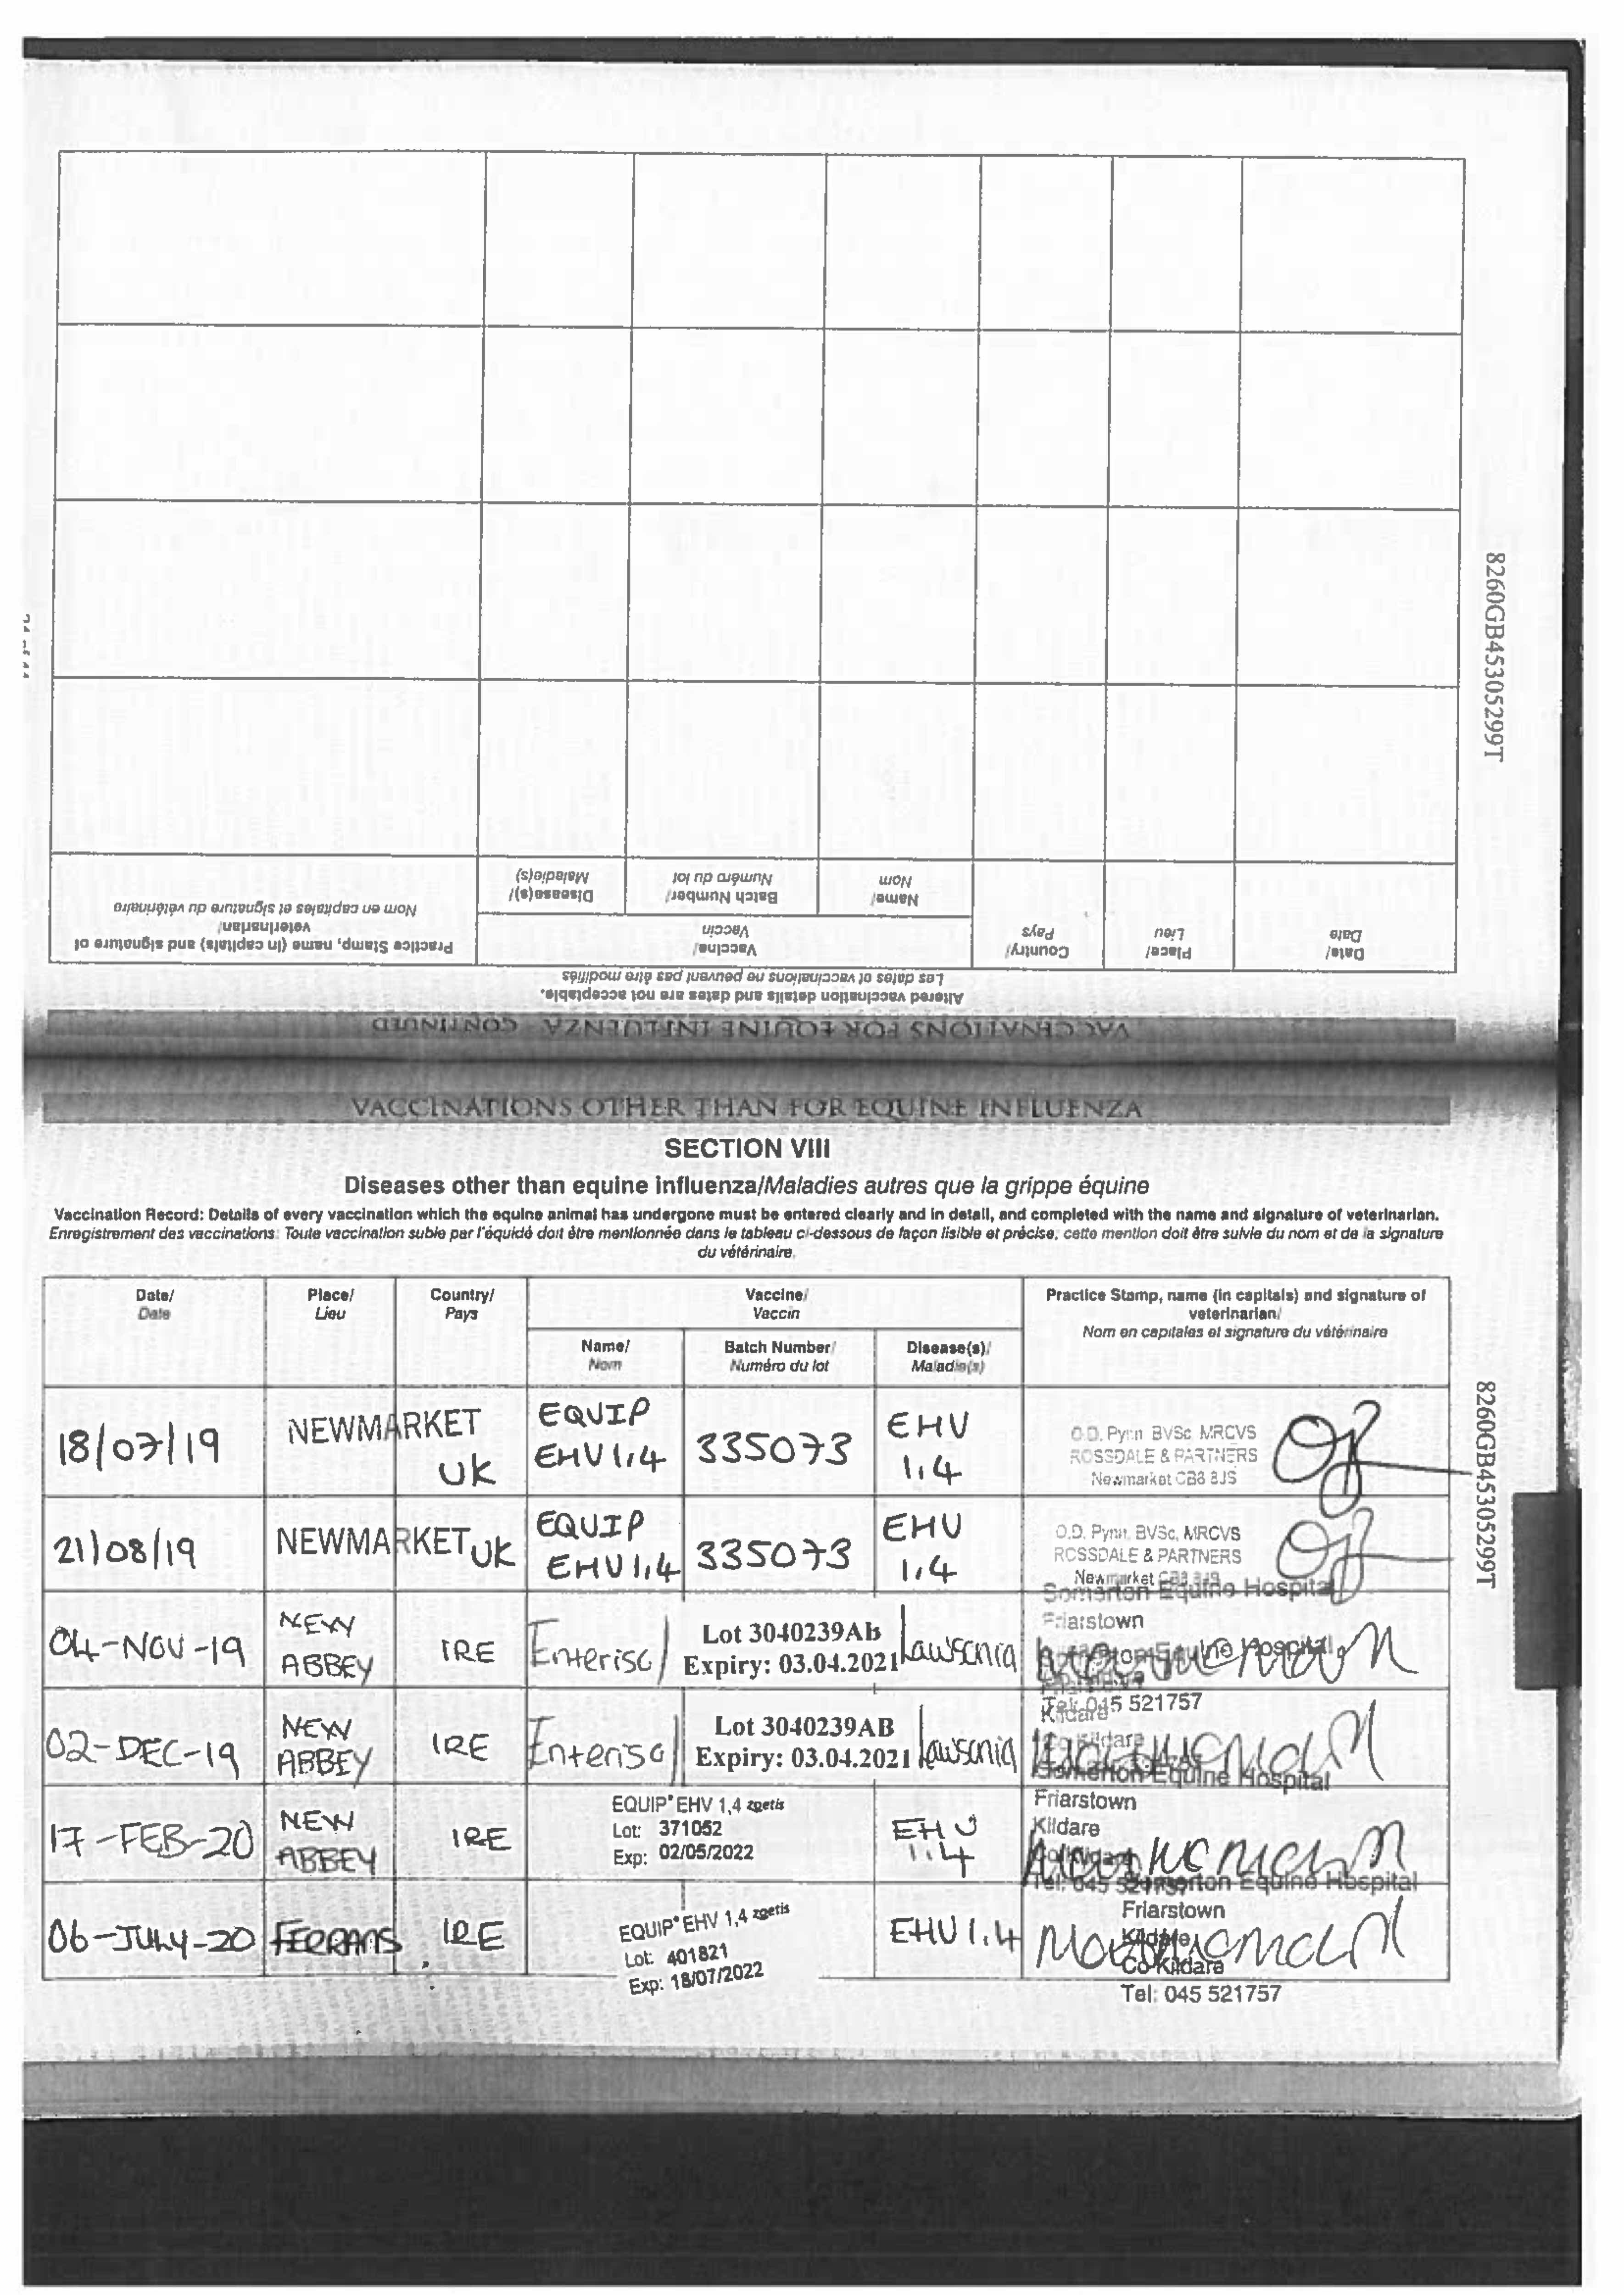 8260GB45305299T
Practice Stamp, name (in capitals) and signature of
veterinarian/
Nom en capitales et signature du vétérinaire
Disease(s)/
Maladie(s)
Batch Number/
Numéro du lot
Name/
Nom
Vaccine/
Vaccin
Country/
Pays
Place/
Lieu
Date/
Date
Altered vaccination details and dates are not acceptable.
Les dates et vaccinations ne peuvent pas être modifiés
VACCINATIONS FOR EQUINE INFLUENZA - CONTINUED
VACCINATIONS OTHER THAN FOR EQUINE INFLUENZA
SECTION VIII
Diseases other than equine influenza/Maladies autres que la grippe équine
Vaccination Record: Details of every vaccination which the equine animal has undergone must be entered clearly and in detail, and completed with the name and signature of veterinarian.
Enregistrement des vaccinations: Toute vaccination subie par l'équidé doit être mentionnée dans le tableau ci-dessous de façon lisible et précise; cette mention doit être suivie du nom et de la signature
du vétérinaire.
Date/
Date
Place/
Lieu
Country/
Pays
Vaccine/
Vaccin
Name/
Nom
Batch Number/
Numéro du lot
Disease(s)/
Maladie(s)
Practice Stamp, name (in capitals) and signature of
veterinarian/
Nom en capitales et signature du vétérinaire
8260GB45305299T
18/07/19
NEWMARKET
UK
EQUIP
EHV 1,4
335073
EHV
1,4
O.D. Pynn BVSc MRCVS
ROSSDALE & PARTNERS
Newmarket CB8 8JS
21/08/19
NEWMARKET UK
EQUIP
EHV 1,4
335073
EHV
1,4
O.D. Pynn, BVSc, MRCVS
ROSSDALE & PARTNERS
Newmarket CB8 8JS
04-NOV-19
NEW
ABBEY
IRE
Enterisol
Lot 3040239AB
Expiry: 03.04.2021
Lawsonia
Somerton Equine Hospital
Friarstown
Tel: 045 521757
02-DEC-19
NEW
ABBEY
IRE
Enterisol
Lot 3040239AB
Expiry: 03.04.2021
Lawsonia
Kildare
Co Kildare
17-FEB-20
NEW
ABBEY
IRE
EQUIP® EHV 1,4 zoetis
Lot: 371052
Exp: 02/05/2022
EHV
1.4
Somerton Equine Hospital
Friarstown
Kildare
Co Kildare
Tel: 045 521757
06-JULY-20
FERRANS
IRE
EQUIP® EHV 1,4 zoetis
Lot: 401821
Exp: 18/07/2022
EHV 1.4
Somerton Equine Hospital
Friarstown
Kildare
Co Kildare
Tel: 045 521757